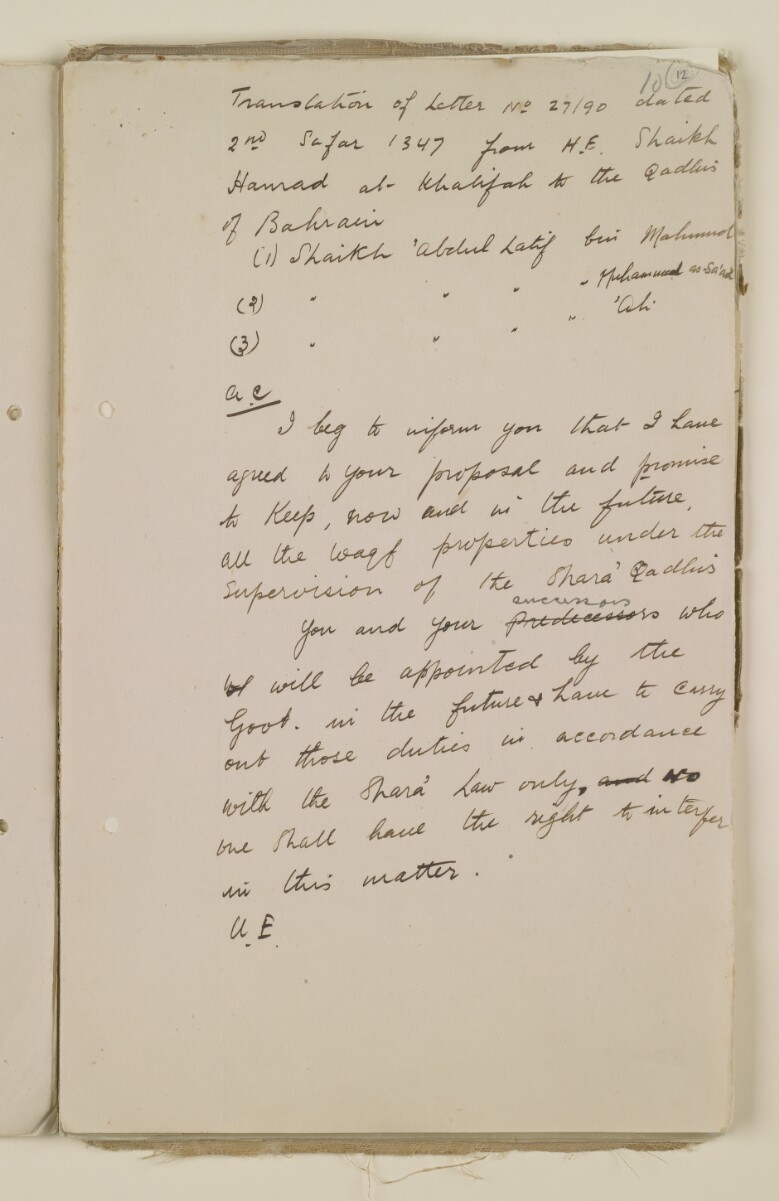 10 12
Translation of Letter No 27/90 dated
2nd Safar 1347 from H.E. Shaikh
Hamad al-Khalifah to the Qadhis
of Bahrain
(1) Shaikh 'Abdul Latif bin Mahmud
(2) " " " " Muhammad as-Sa'ad
(3) " " " " 'Ali
a.c
I beg to inform you that I have
agreed to your proposal and promise
to keep, now and in the future,
all the waqf properties under the
Supervision of the Shara' Qadhis
successors
You and your predecessors who
will be appointed by the
Govt. in the future & have to carry
out those duties in accordance
with the Shara' Law only, and No
one shall have the right to interfer
in this matter.
U.E.